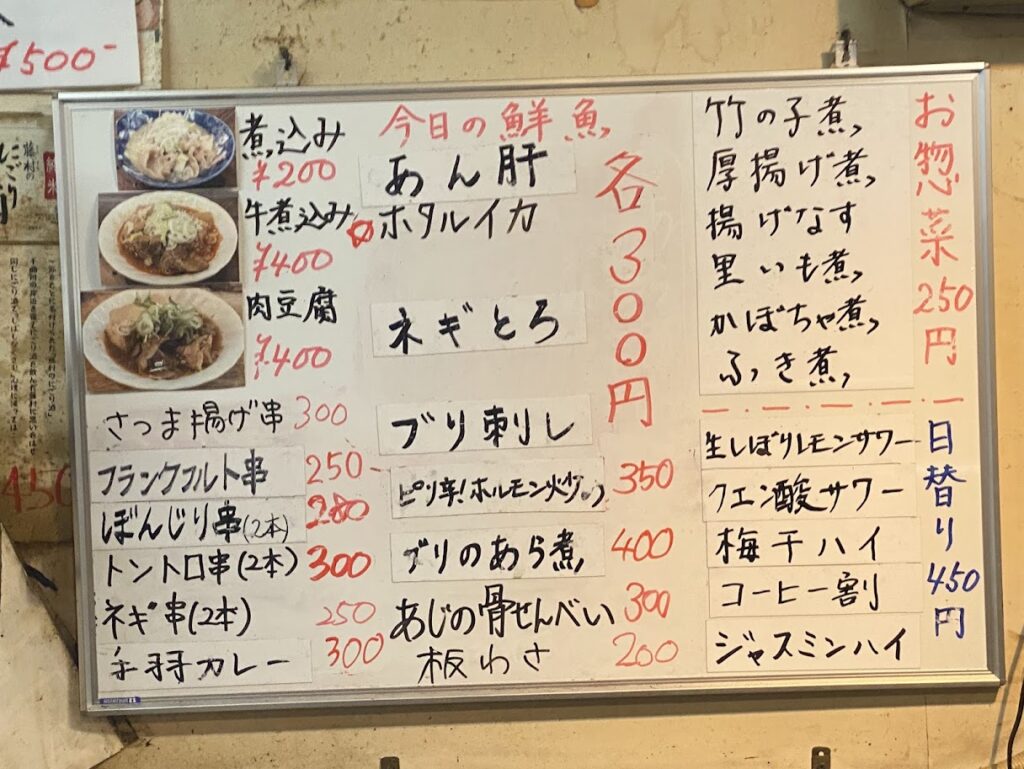 ¥500-
煮込み
¥200
牛煮込み
¥400
肉豆腐
¥400
さつま揚げ串 300
フランクフルト串 250-
ぼんじり串(2本) 200
トントロ串(2本) 300
ネギ串(2本) 250
手羽カレー 300
今日の鮮魚
各300円
あん肝
ホタルイカ
ネギとろ
ブリ刺し
ピリ辛!ホルモン炒め 350
ブリのあら煮 400
あじの骨せんべい 300
板わさ 200
お惣菜250円
竹の子煮
厚揚げ煮
揚げなす
里いも煮
かぼちゃ煮
ふき煮
日替り450円
生しぼりレモンサワー
クエン酸サワー
梅干ハイ
コーヒー割
ジャスミンハイ
450